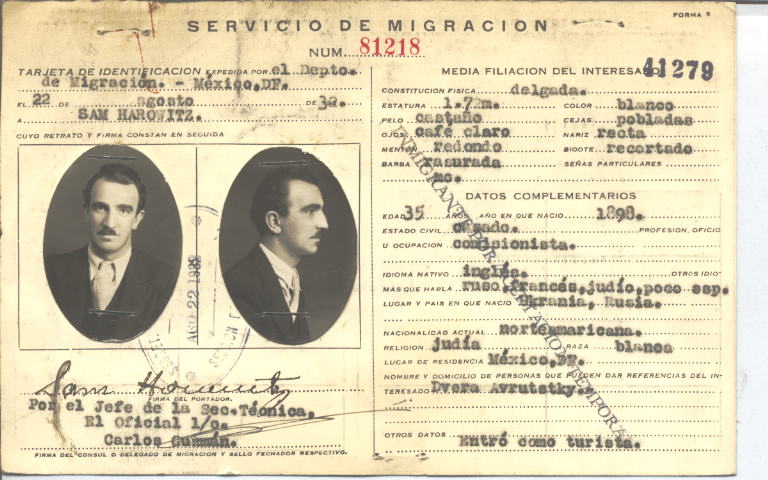 FORMA 5
SERVICIO DE MIGRACION
NUM. 81218
TARJETA DE IDENTIFICACION EXPEDIDA POR el Depto.
de Migración. - México, DF.
EL 22 DE agosto DE 32.
A SAM HAROWITZ.
CUYO RETRATO Y FIRMA CONSTAN EN SEGUIDA
AGO 22 1932
Sam Horowitz
FIRMA DEL PORTADOR.
Por el Jefe de la Sec. Técnica,
El Oficial 1/o.
Carlos Guzmán.
FIRMA DEL CONSUL O DELEGADO DE MIGRACION Y SELLO FECHADOR RESPECTIVO.
MEDIA FILIACION DEL INTERESADO 41279
CONSTITUCION FISICA delgada.
ESTATURA 1.72m. COLOR blanco
PELO castaño CEJAS pobladas
OJOS café claro NARIZ recta
MENTON redondo BIGOTE recortado
BARBA rasurada SEÑAS PARTICULARES
no.
DATOS COMPLEMENTARIOS
EDAD 35 AÑOS. AÑO EN QUE NACIO 1898.
ESTADO CIVIL casado. PROFESION, OFICIO
U OCUPACION comisionista.
IDIOMA NATIVO inglés. OTROS IDIO
MAS QUE HABLA ruso, francés, judío, poco esp.
LUGAR Y PAIS EN QUE NACIO Ukrania, Rusia.
NACIONALIDAD ACTUAL norteamaricana.
RELIGION judía RAZA blanca
LUGAR DE RESIDENCIA México, DF.
NOMBRE Y DOMICILIO DE PERSONAS QUE PUEDEN DAR REFERENCIAS DEL IN-
TERESADO Dvera Avrutstky.
OTROS DATOS Entró como turista.